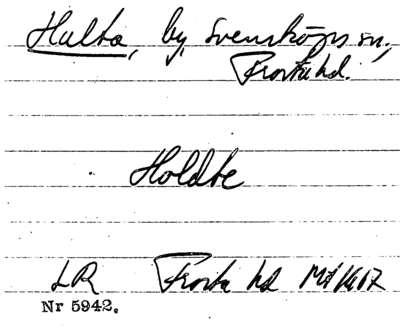 Hulta, by, Svensköps sn.,
Frosta hd.
Holdte
LR Frosta hd Mt 1617
Nr 5942.